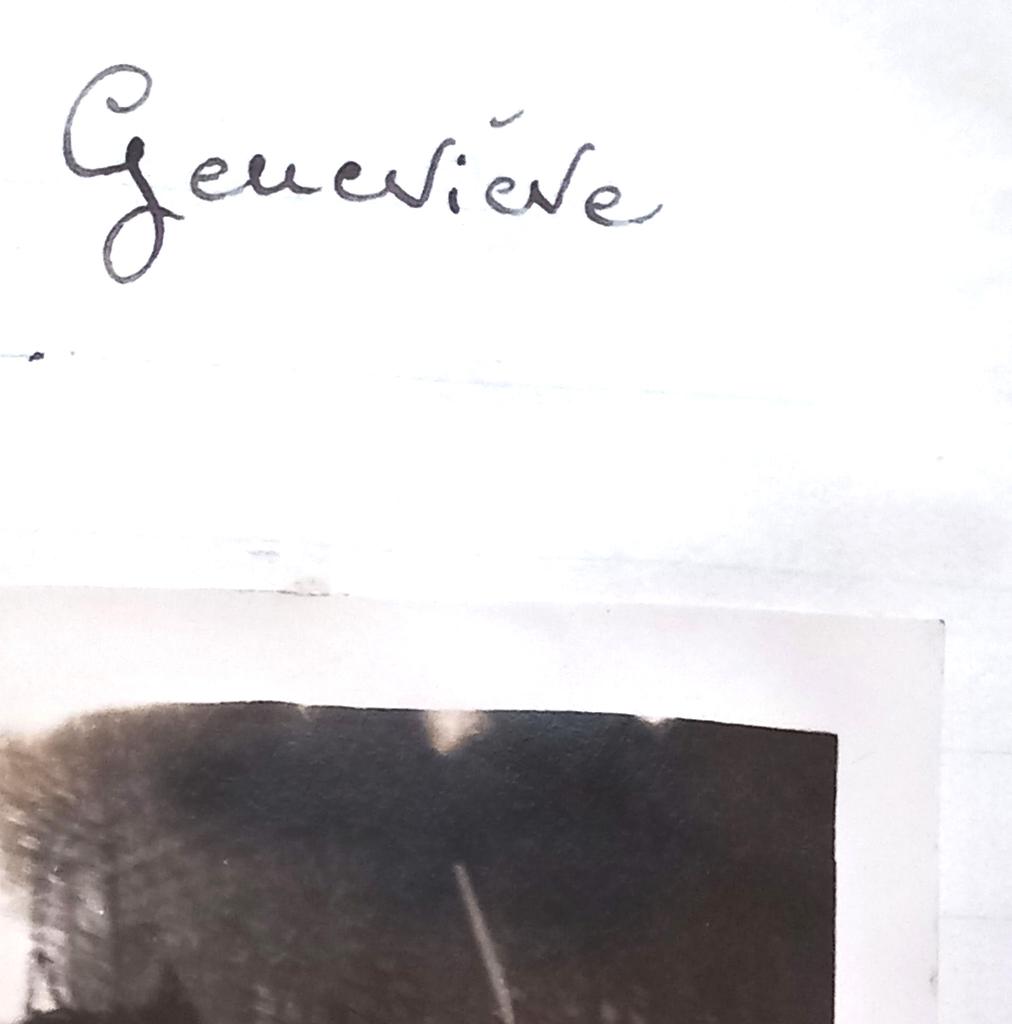 Geneviève